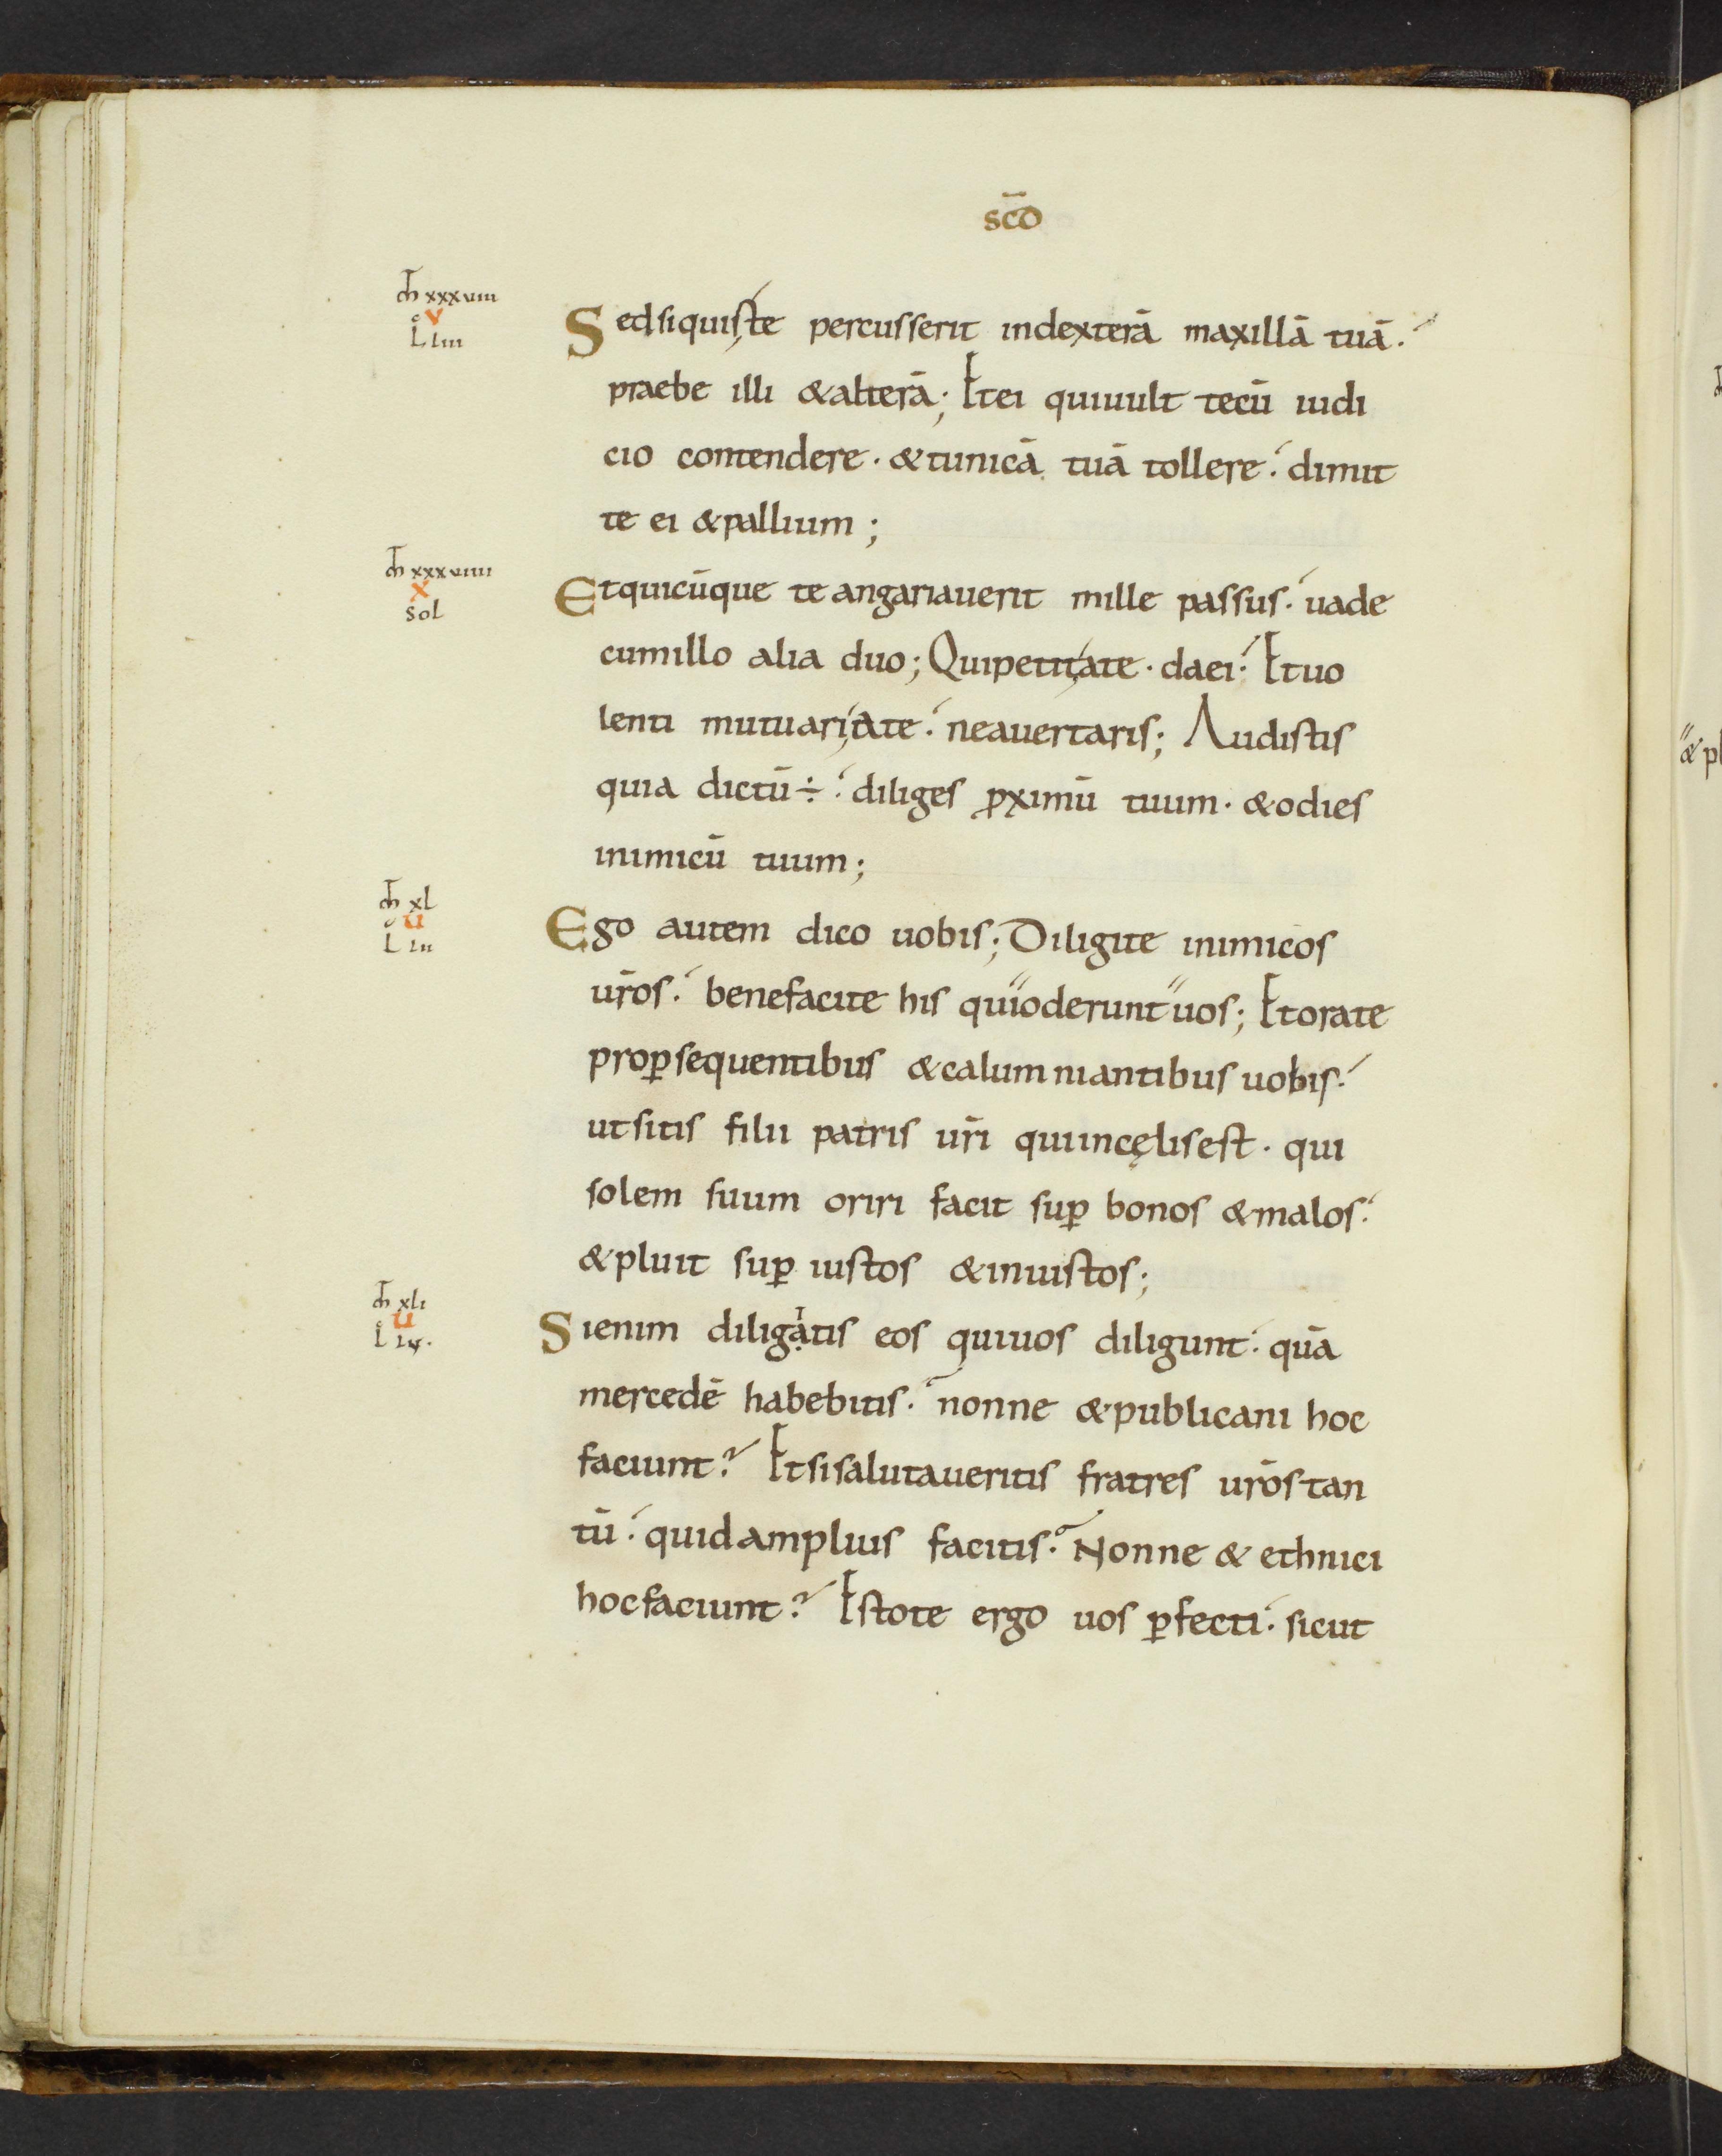 scō
m̄ xxxviii
v
L liii
Sedsiquiste percusserit indexterā maxillā tuā.
praebe illi &alterā; Etei quiuult tecū iudi
cio contendere. &tunicā tuā tollere. dimit
te ei &pallium;
m̄ xxxviiii
x
sol
Etquicūque te angariauerit mille passus. uade
cumillo alia duo; Quipetitate. daei. Etuo
lenti mutuariate. neauertaris; Audistis
quia dictū÷. diliges ꝓximū tuum. &odies
inimicū tuum;
m̄ xl
u
L lii
Ego autem dico uobis; Diligite inimicos
ur̄os. benefacite his quioderuntuos; Etorate
proꝑsequentibus &calumniantibus uobis.
utsitis filii patris ur̄i quiincęlisest. qui
solem suum oriri facit suꝑ bonos &malos.
&pluit suꝑ iustos &iniustos;
m̄ xli
u
L lv.
Sienim diligatis eos quiuos diligunt. quā
mercedē habebitis. nonne &publicani hoc
faciunt? Etsisalutaueritis fratres ur̄ostan
tū. quidamplius facitis. Nonne & ethnici
hocfaciunt? Estote ergo uos ꝑfecti. sicut
& pl